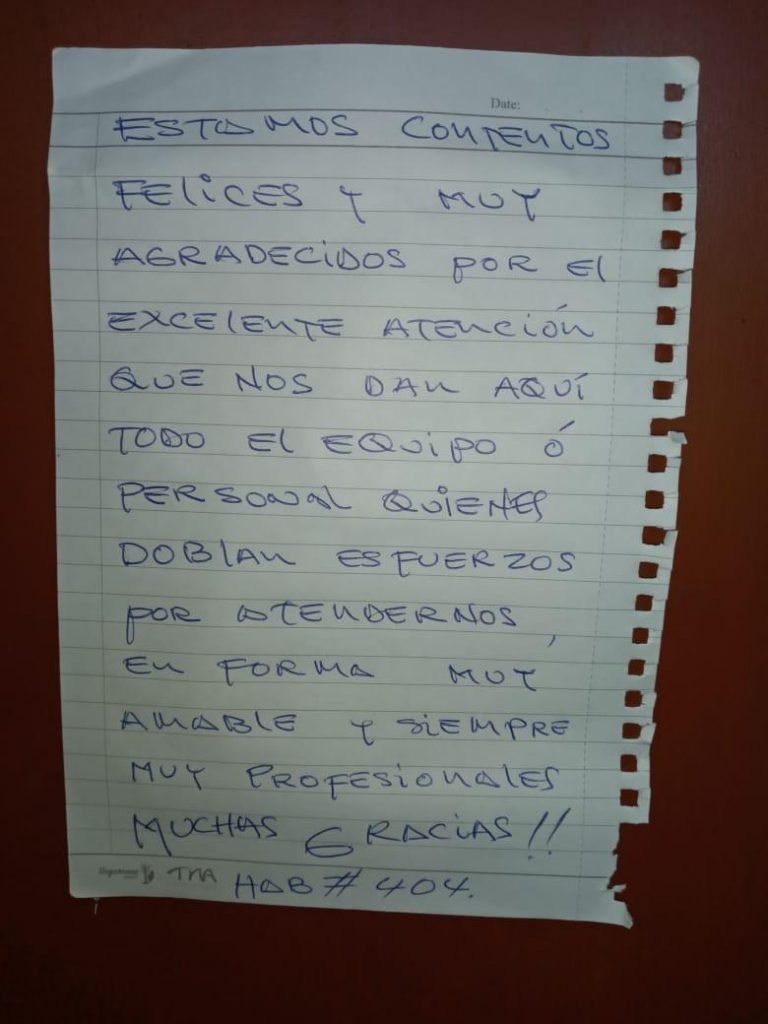 Date:
ESTAMOS CONTENTOS
FELICES Y MUY
AGRADECIDOS POR El
EXCElENTE ATENCIÓN
QUE NOS DAN AQUÍ
TODO El EQUIPO Ó
PERSONAL QUIENES
DOBlAN ESFUERZOS
POR ATENDERNOS,
EN FORMA MUY
AMABLE Y SIEMPRE
MUY PROFESIONALES
MUCHAS GRACIAS!!
HAB # 404.